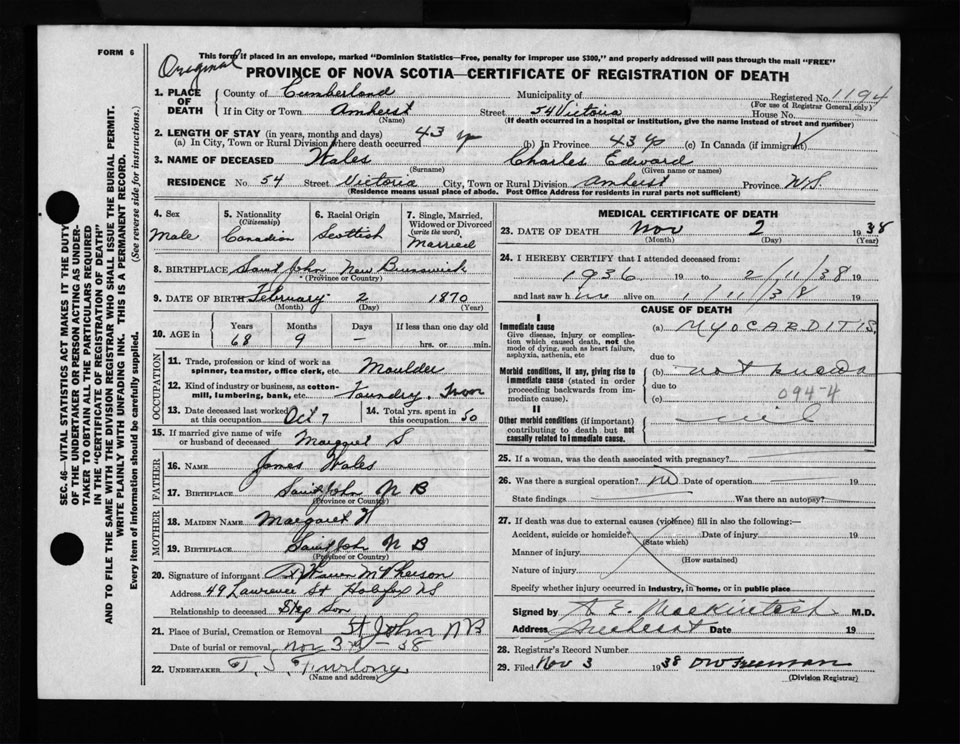 FORM 6
This form if placed in an envelope, marked "Dominion Statistics—Free, penalty for improper use $300," and properly addressed will pass through the mail "FREE"
Original
PROVINCE OF NOVA SCOTIA—CERTIFICATE OF REGISTRATION OF DEATH
1. PLACE OF DEATH County of Cumberland Municipality of Registered No. 1194
(For use of Registrar General only)
If in City or Town Amherst Street 54 Victoria House No.
(Name) (If death occurred in a hospital or institution, give the name instead of street and number)
2. LENGTH OF STAY (in years, months and days)
(a) In City, Town or Rural Division where death occurred 43 y (b) In Province 43 y (c) In Canada (if immigrant)
3. NAME OF DECEASED Wales Charles Edward
(Surname) (Given name or names)
RESIDENCE No. 54 Street Victoria City, Town or Rural Division Amherst Province N.S.
(Residence means usual place of abode. Post Office Address for residents in rural parts not sufficient)
4. Sex Male
5. Nationality (Citizenship) Canadian
6. Racial Origin Scottish
7. Single, Married, Widowed or Divorced (write the word) Married
8. BIRTHPLACE Saint John New Brunswick
(Province or Country)
9. DATE OF BIRTH February 2 1870
(Month) (Day) (Year)
10. AGE in Years Months Days If less than one day old
68 9 — hrs. or min.
OCCUPATION
11. Trade, profession or kind of work as spinner, teamster, office clerk, etc. Moulder
12. Kind of industry or business, as cotton-mill, lumbering, bank, etc. Foundry. Iron
13. Date deceased last worked at this occupation Oct 7
14. Total yrs. spent in this occupation 50
15. If married give name of wife or husband of deceased Margaret S
FATHER
16. NAME James Wales
17. BIRTHPLACE Saint John N B
(Province or Country)
MOTHER
18. MAIDEN NAME Margaret
19. BIRTHPLACE Saint John N B
(Province or Country)
20. Signature of informant Warren McPherson
Address 49 Lawrence St Halifax NS
Relationship to deceased Step Son
21. Place of Burial, Cremation or Removal St John NB
Date of burial or removal Nov 3rd - 38
22. UNDERTAKER Furlong
(Name and address)
MEDICAL CERTIFICATE OF DEATH
23. DATE OF DEATH Nov 2 1938
(Month) (Day) (Year)
24. I HEREBY CERTIFY that I attended deceased from:
1936 19 to 2/11/38 19
and last saw h im alive on 1/11/38 19
CAUSE OF DEATH
I
Immediate cause
Give disease, injury or complication which caused death, not the mode of dying, such as heart failure, asphyxia, asthenia, etc
(a) MYOCARDITIS
due to
Morbid conditions, if any, giving rise to immediate cause (stated in order proceeding backwards from immediate cause).
(b) not known
due to 094-4
(c)
II
Other morbid conditions (if important) contributing to death but not causally related to immediate cause.
nil
25. If a woman, was the death associated with pregnancy?
26. Was there a surgical operation? No Date of operation 19
State findings Was there an autopsy?
27. If death was due to external causes (violence) fill in also the following:—
Accident, suicide or homicide? Date of injury 19
(State which)
Manner of injury
(How sustained)
Nature of injury
Specify whether injury occurred in industry, in home, or in public place
Signed by A E. Mackintosh M.D.
Address Amherst Date 19
28. Registrar's Record Number
29. Filed Nov 3 1938 DW Freeman
(Division Registrar)
SEC. 46—VITAL STATISTICS ACT MAKES IT THE DUTY
OF THE UNDERTAKER OR PERSON ACTING AS UNDER-
TAKER TO OBTAIN ALL THE PARTICULARS REQUIRED
IN THE "CERTIFICATE OF REGISTRATION OF DEATH"
AND TO FILE THE SAME WITH THE DIVISION REGISTRAR WHO SHALL ISSUE THE BURIAL PERMIT.
WRITE PLAINLY WITH UNFADING INK. THIS IS A PERMANENT RECORD.
Every item of information should be carefully supplied. (See reverse side for instructions.)